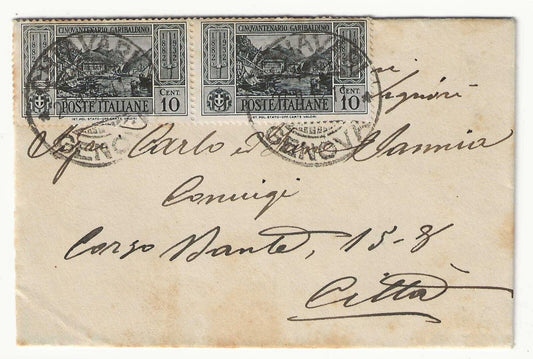 CINQVANTENARIO GARIBALDINO CINQVANTENARIO GARIBALDINO
CENT. CENT.
POSTE ITALIANE 10 POSTE ITALIANE 10
IST. POL. STATO-OFF. CARTE VALORI IST. POL. STATO-OFF. CARTE VALORI
CHIAVARI
GENOVA GENOVA
Signori
Carlo ed
Coniugi
Corso Dante, 15-8
Città